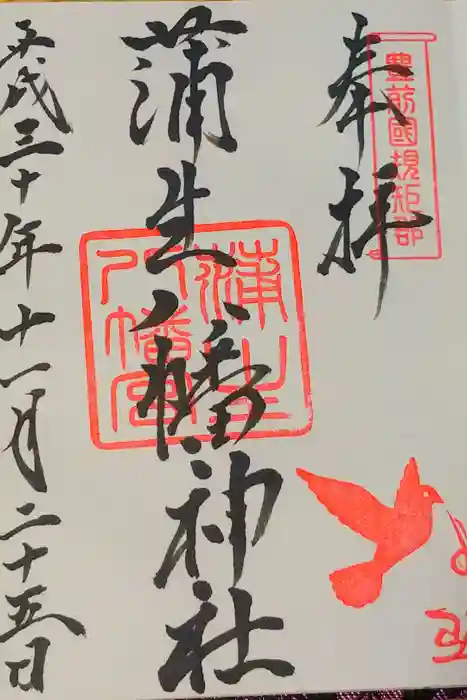 豊前國規矩郡
奉拝
蒲生八幡神社
蒲生
八幡宮
平成三十年十一月二十五日